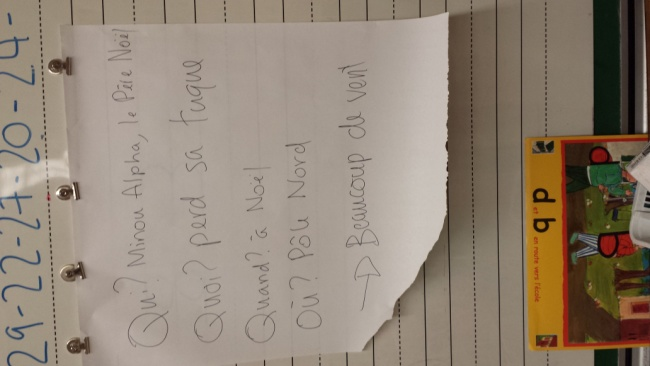 29-22-27-20-24-
Qui? Minou Alpha, le Père Noël
Quoi? perd sa tuque
Quand? à Noël
Où? Pôle Nord
→ Beaucoup de vent
d et b
en route vers l'école